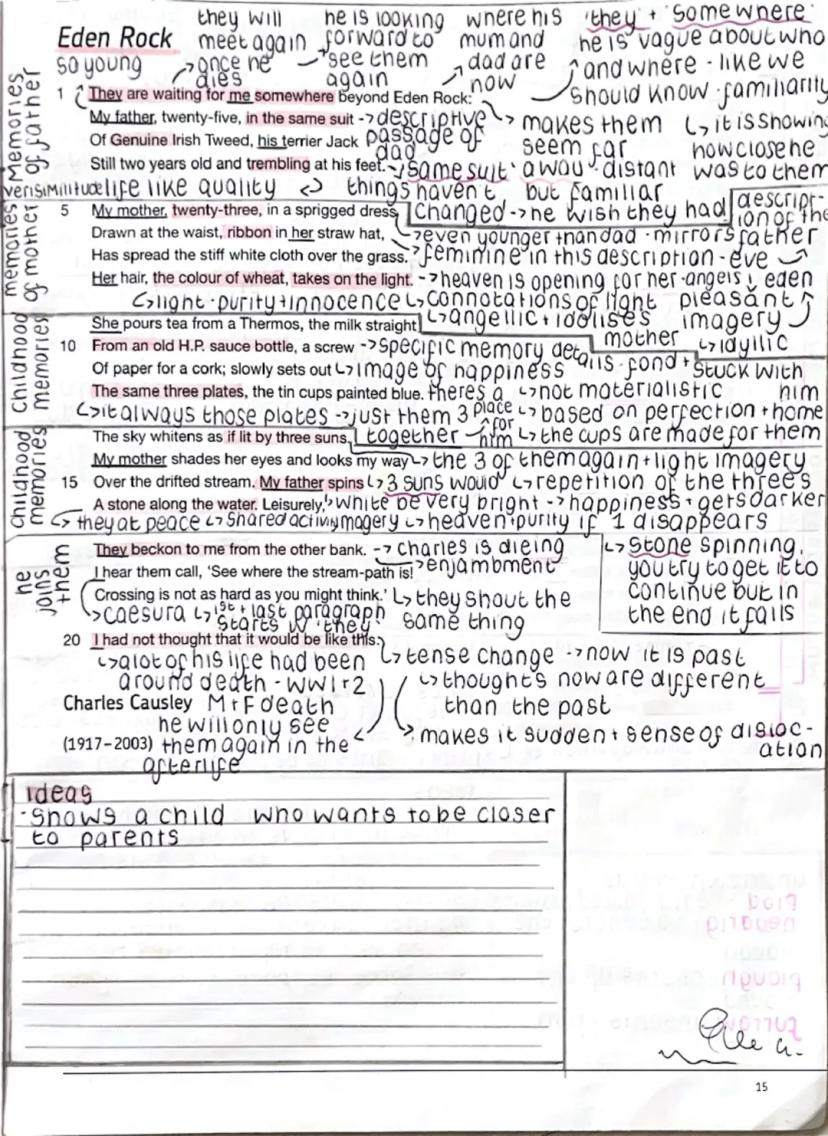 they will he is looking where his 'they' + 'somewhere'
Eden Rock meet again forward to mum and he is vague about who
so young once he see them dad are and where - like we
dies again now should know - familiarity
Memories of father
1 They are waiting for me somewhere beyond Eden Rock:
My father, twenty-five, in the same suit -> descriptive makes them it is showing
Of Genuine Irish Tweed, his terrier Jack passage of dad seem far how close he
Still two years old and trembling at his feet. 'same suit' away - distant was to them
verisimilitude life like quality things haven't but familiar
memories of mother
5 My mother, twenty-three, in a sprigged dress changed -> he wish they had descript-
ion of the
Drawn at the waist, ribbon in her straw hat, even younger than dad - mirrors father
Has spread the stiff white cloth over the grass. feminine in this description - eve
Her hair, the colour of wheat, takes on the light. -> heaven is opening for her - angels eden
light - purity + innocence connotations of light pleasant
She pours tea from a Thermos, the milk straight angellic + idolises mother imagery
childhood memories
10 From an old H.P. sauce bottle, a screw -> specific memory details - fond + idyllic
Of paper for a cork; slowly sets out image of happiness stuck with
The same three plates, the tin cups painted blue. there's a not materialistic him
it always those plates -> just them 3 place for him based on perfection + home
The sky whitens as if lit by three suns. together the cups are made for them
childhood memories
My mother shades her eyes and looks my way the 3 of them again + light imagery
15 Over the drifted stream. My father spins 3 suns would repetition of the threes
A stone along the water. Leisurely, white be very bright -> happiness + gets darker
they at peace shared activity imagery heaven + purity if 1 disappears
he joins them
They beckon to me from the other bank. -> charles is dieing stone spinning,
I hear them call, 'See where the stream-path is! enjambment you try to get it to
Crossing is not as hard as you might think.' they shout the continue but in
caesura 1st + last paragraph same thing the end it falls
starts w 'they'
20 I had not thought that it would be like this.
a lot of his life had been tense change -> now it is past
around death - WW1 + 2 thoughts now are different
Charles Causley Mr F death than the past
he will only see makes it sudden + sense of disloc-
(1917–2003) them again in the ation
afterlife
ideas
- Shows a child who wants to be closer
to parents
15